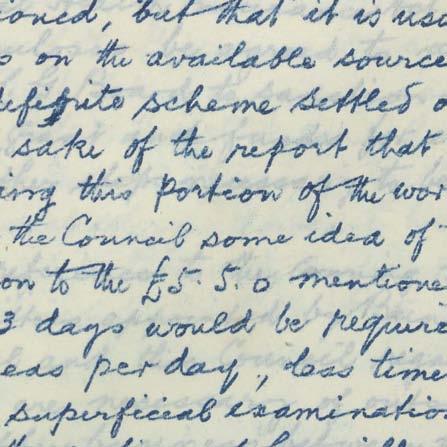 ioned, but that it is use
s on the available source
definite scheme settled
sake of the report that
ing this portion of the wor
the Council some idea of
on to the £5.5.0 mentione
3 days would be require
eas per day, less time
superficial examination